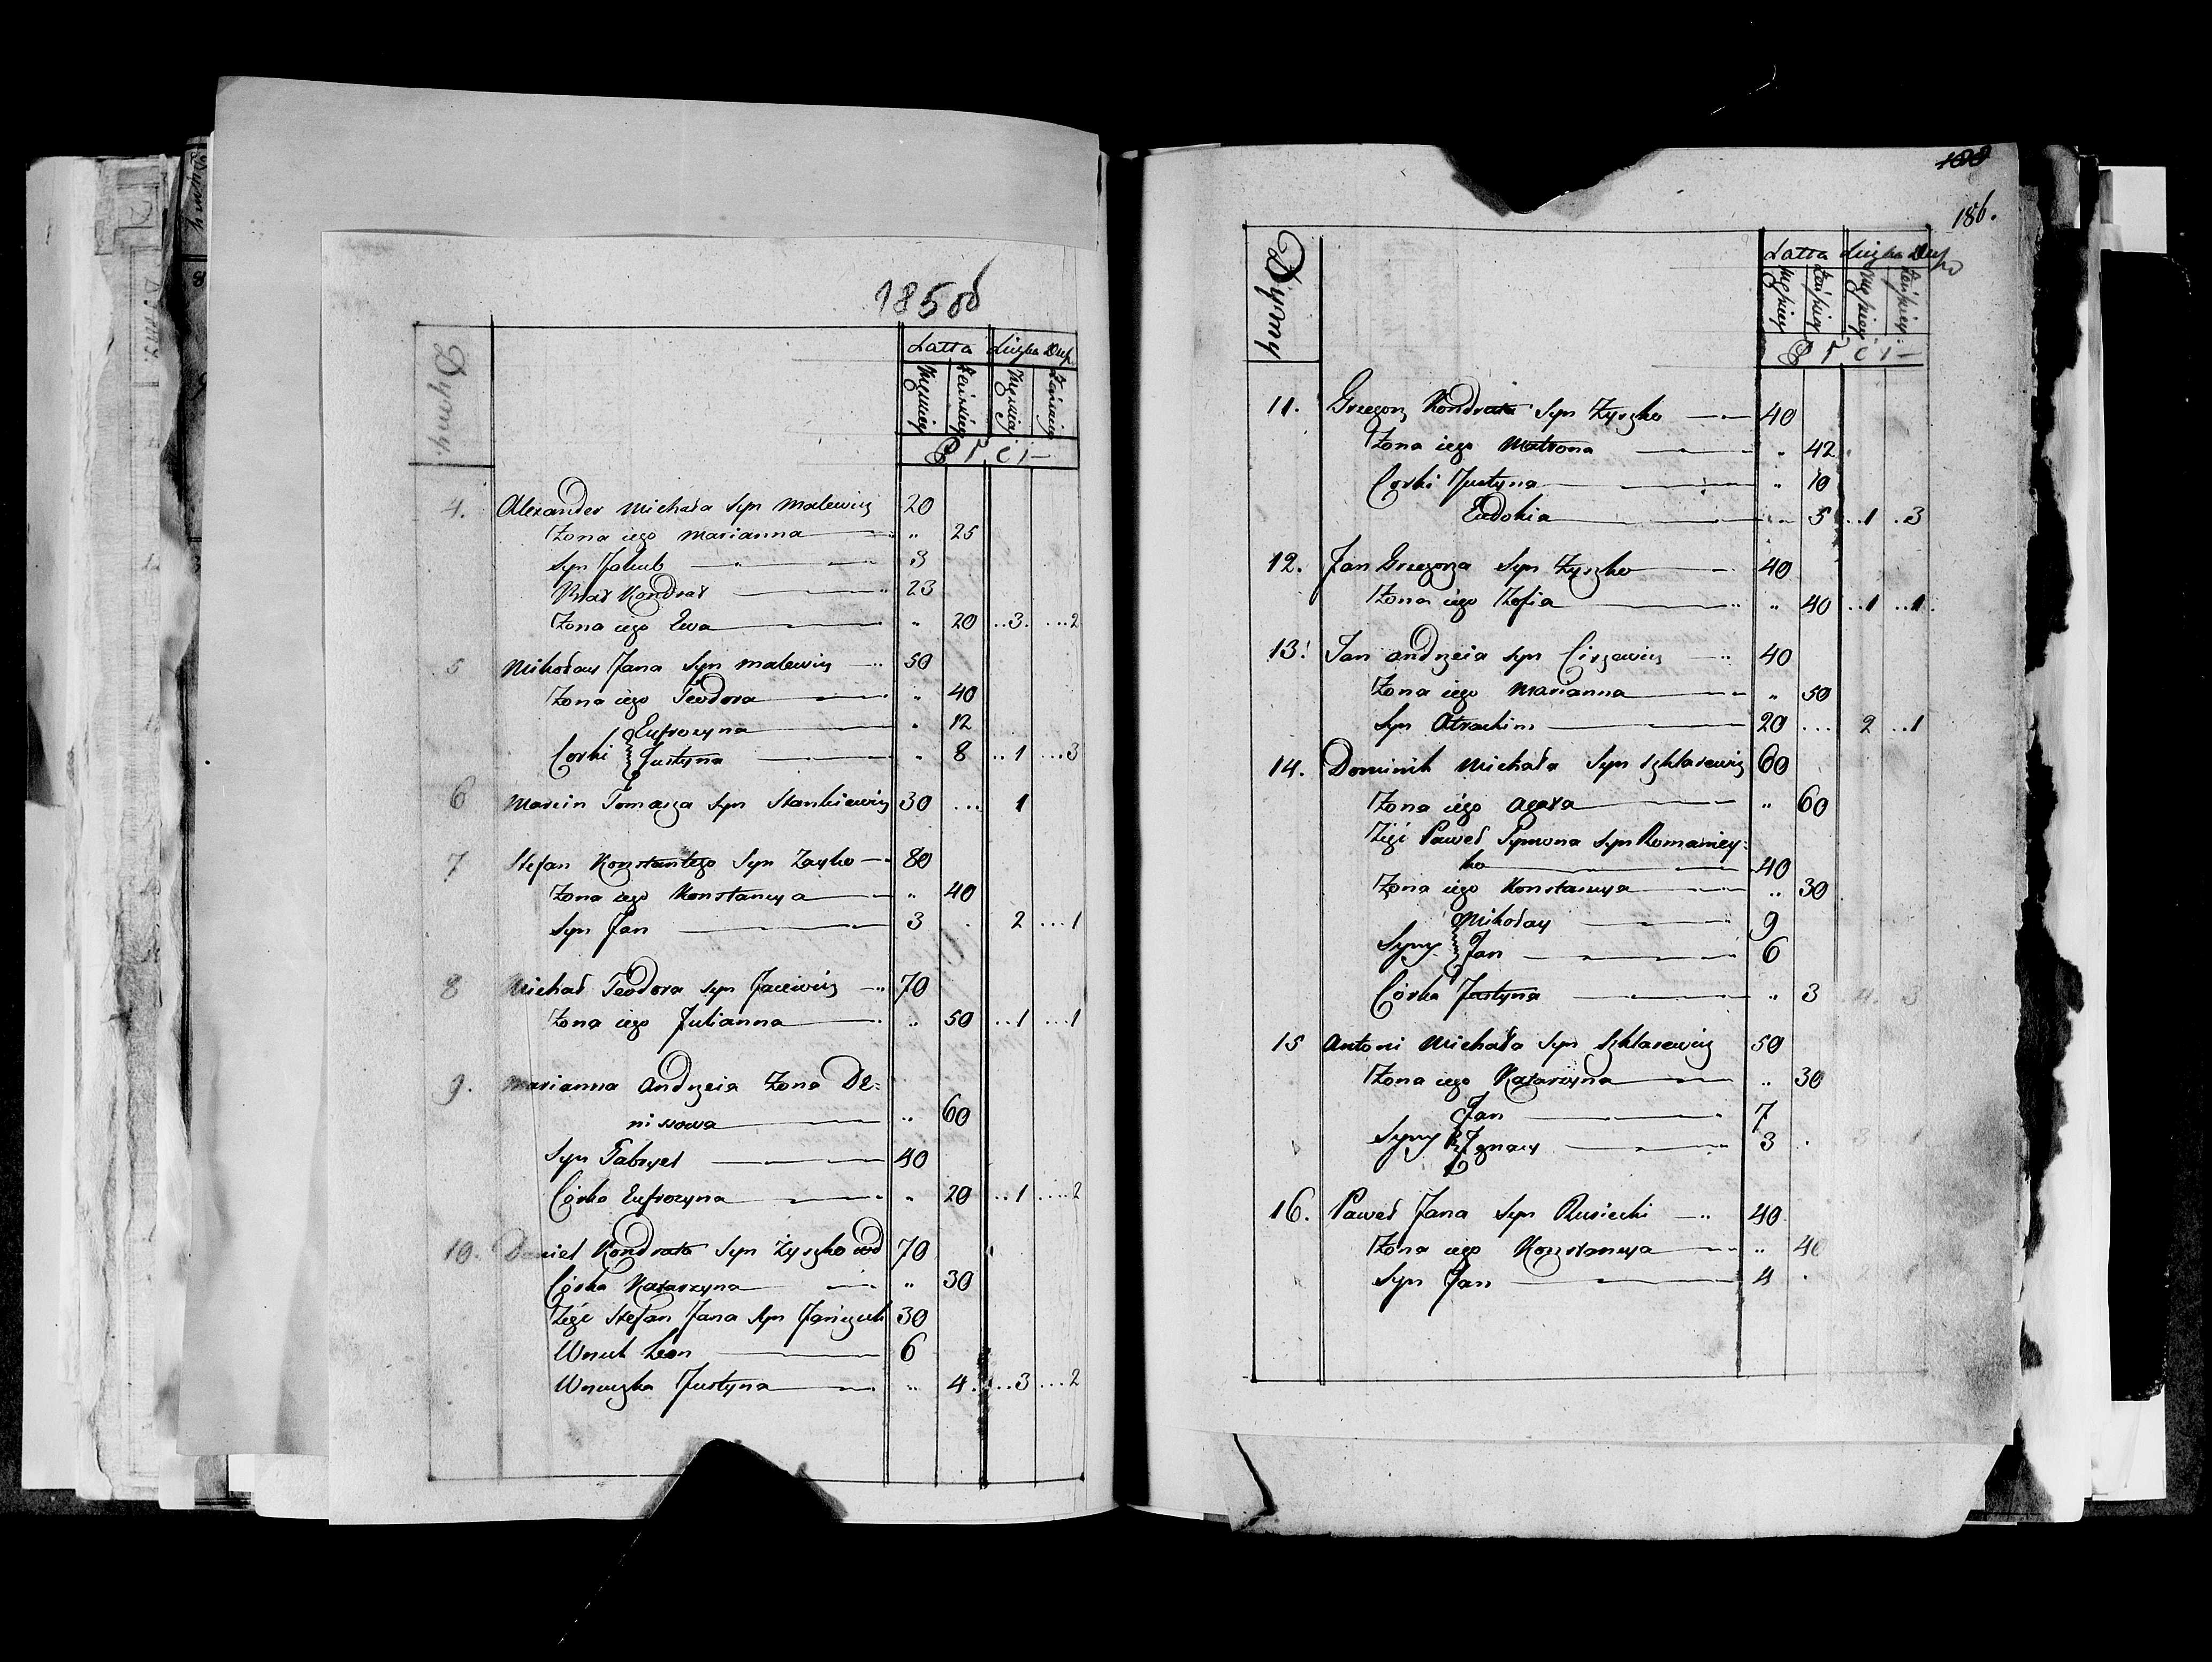 185 об
Dymy.
Latta Liczba Dusz
Męskiey Żeńskiey Męskiey Żeńskiey
P ł c i —
4. Alexander Michała Syn Malewicz 20
Żona iego Marianna " 25
Syn Jakub 3
Brat Kondrat 23
Żona iego Ewa " 20 ..3. ...2
5 Mikołay Jana Syn Malewicz 50
Żona iego Teodora " 40
Eufrozyna " 12
Corki Justyna " 8 ..1 ...3
6 Marcin Tomasza Syn Stankiewicz 30 ... 1
7 Stefan Konstantego Syn Zayko 80
Żona iego Konstancya " 40
Syn Jan 3 . 2 ...1
8 Michał Teodora Syn Jacewicz 70
Żona iego Julianna " 50 ...1 ...1
9. Marianna Andrzeia Żona De=
nissowa " 60
Syn Gabryel 40
Córka Eufrozyna " 20 ..1 ....2
10. Daniel Kondrata Syn Żyszko wd 70
Córka Katarzyna " 30
Zięć Stefan Jana Syn Janczuk 30
Wnuk Leon 6
Wnuczka Justyna " 4. ...3 ...2
186.
Dymy
Latta Liczba Dusz
Męskiey Żeńskiey Męskiey Żeńskiey
P ł c i —
11. Grzegorz Kondrata Syn Żyszko 40
Żona iego Matrona " 42
Corki Justyna " 10
Eudokia " 5 ..1 .3
12. Jan Grzegorza Syn Żyszko 40
Żona iego Zofia " 40 ..1 ..1.
13. Jan Andrzeia Syn Ciszewicz 40
Żona iego Marianna " 50
Syn 20 ... 2 ..1
14. Dominik Michała Syn Szklarewicz 60
Żona iego Agata " 60
Zięć Paweł Symona Syn Romaniey=
ko 40
Żona iego Konstancya " 30
Mikołay 9
Syny Jan 6
Córka Justyna " 3 4. 3
15 Antoni Michała Syn Szklarewicz 50
Żona iego Katarzyna " 30
Jan 7
Syny Ignacy 3 . 3 1
16. Paweł Jana Syn Rusiecki 40
Żona iego Konstancya " 40
Syn Jan 4 .